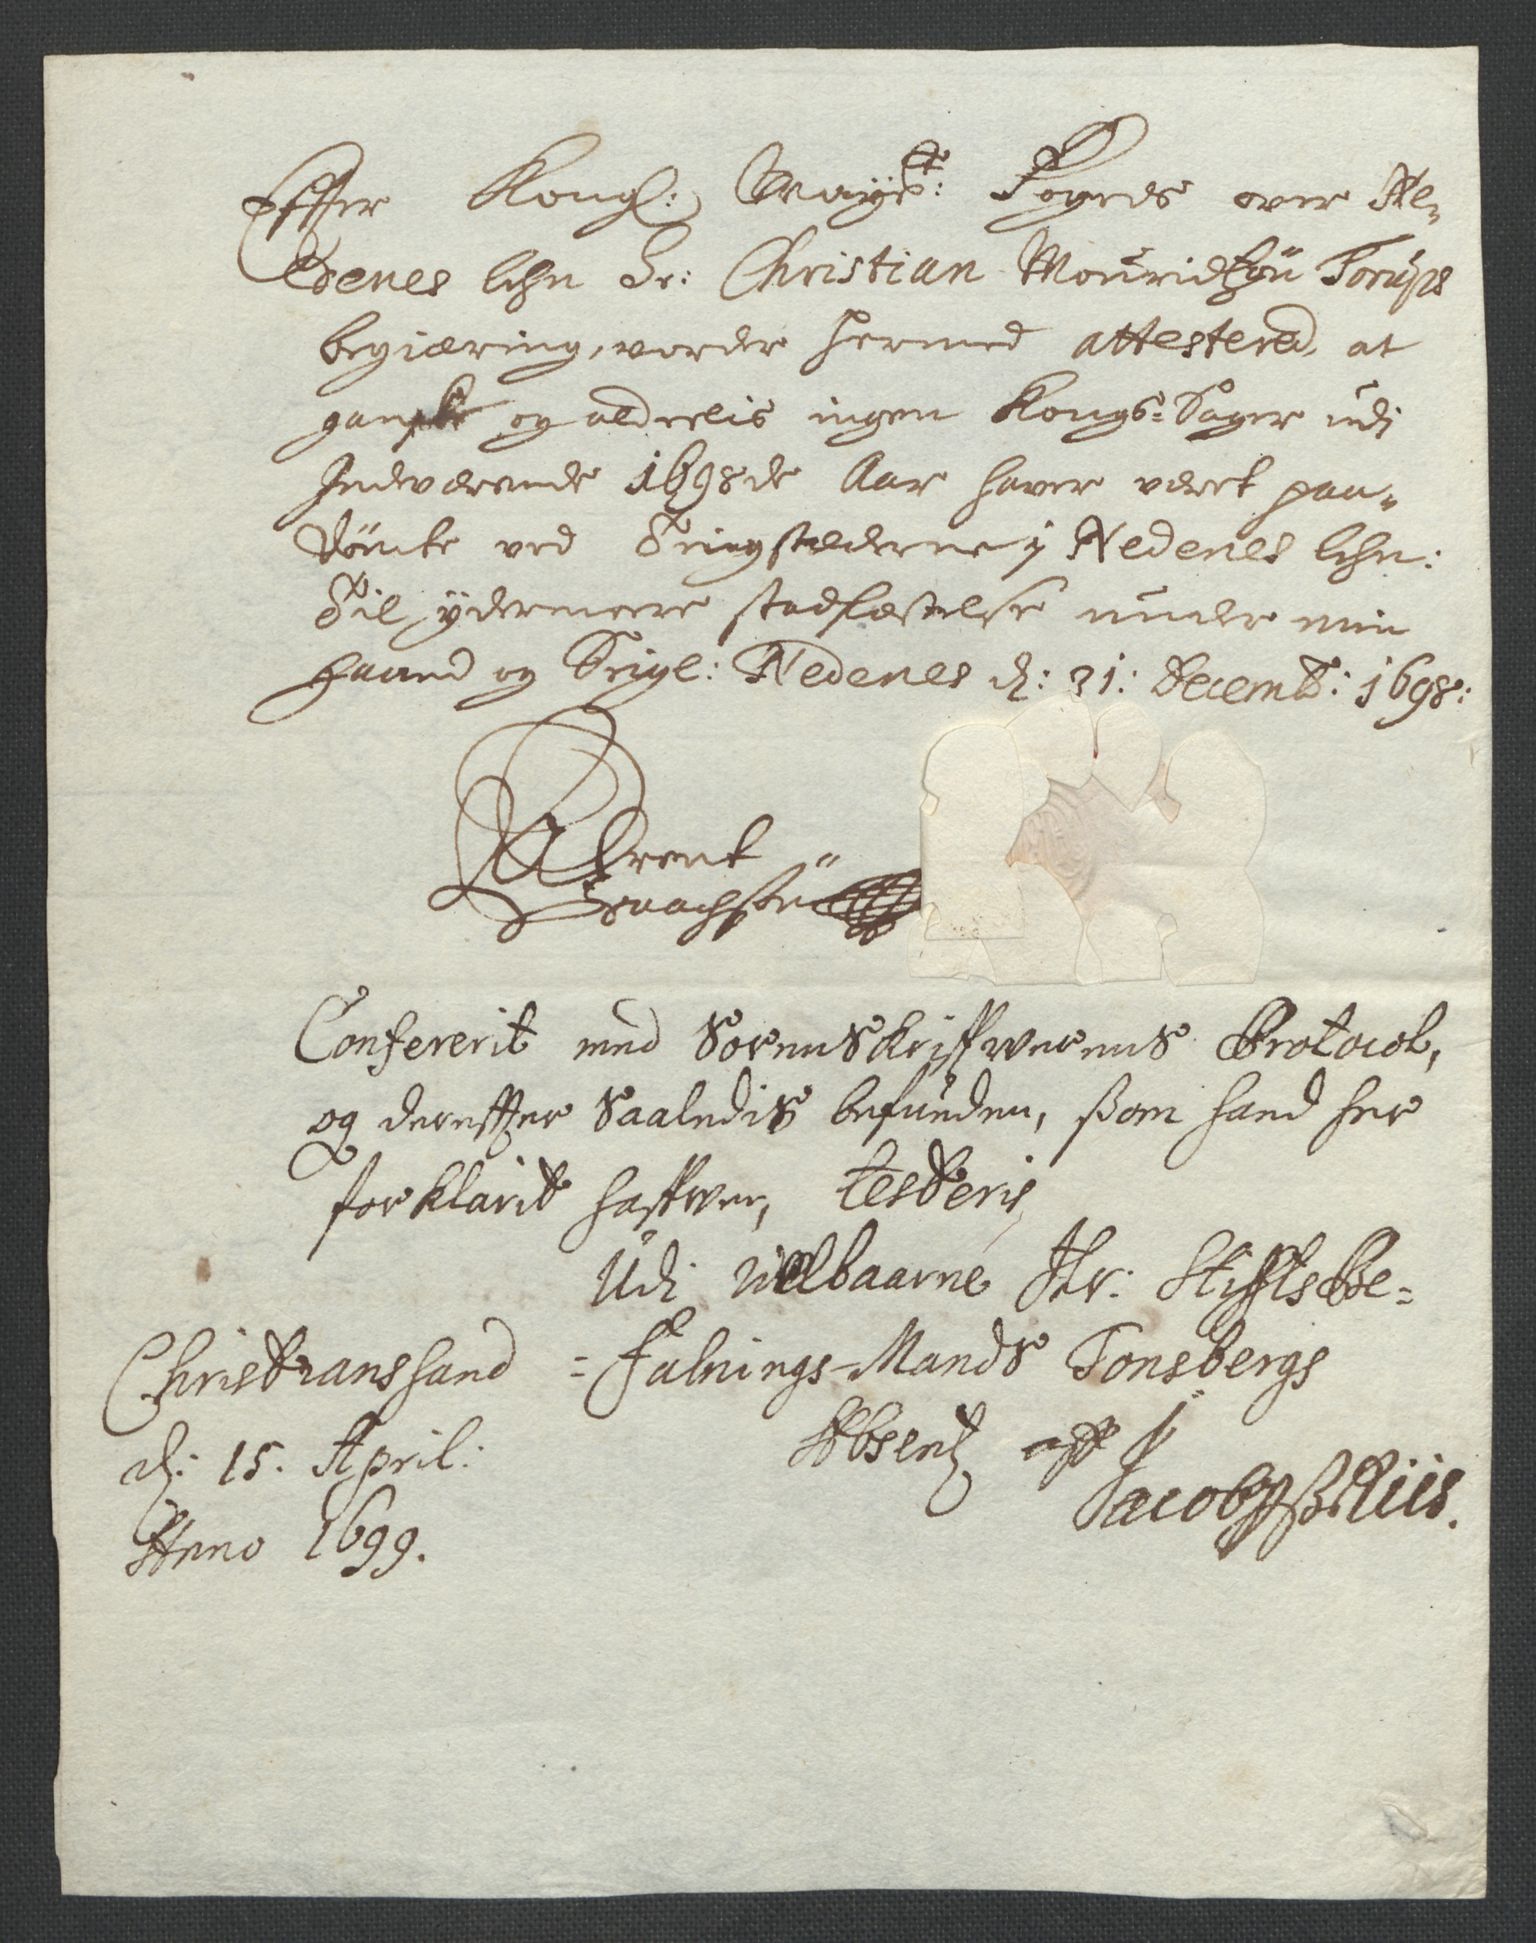 Effter Kongl: Mayes<sup>tt</sup>: Fogeds over Ne„
denes lehn Sr: Christian Mouridtzøn Torups
begiæring, worder hermed attestered, at
gandske og aldrelis ingen Kongs-Sager udj
Indværende 1698de Aar haver været paa„
dömte ved Tingstæderne j Nedenes lehn:
Til ydermeere stadfæstelse under min
Haand og Seigl: Nedenes d: 31: Decemb: 1698:
Arent
Isaachsøn
Confererit med Sorenskriffwerens Protocol,
og dereffter Saaledis befunden, som hand her
forklarit haffwer, testeris
Udi Velbaarne Hr: StifftsBe=
Christianssand =falnings-Mands Tonsbergs
d: 15. April: Absentz eff
Anno 1699. Jacob Riis.